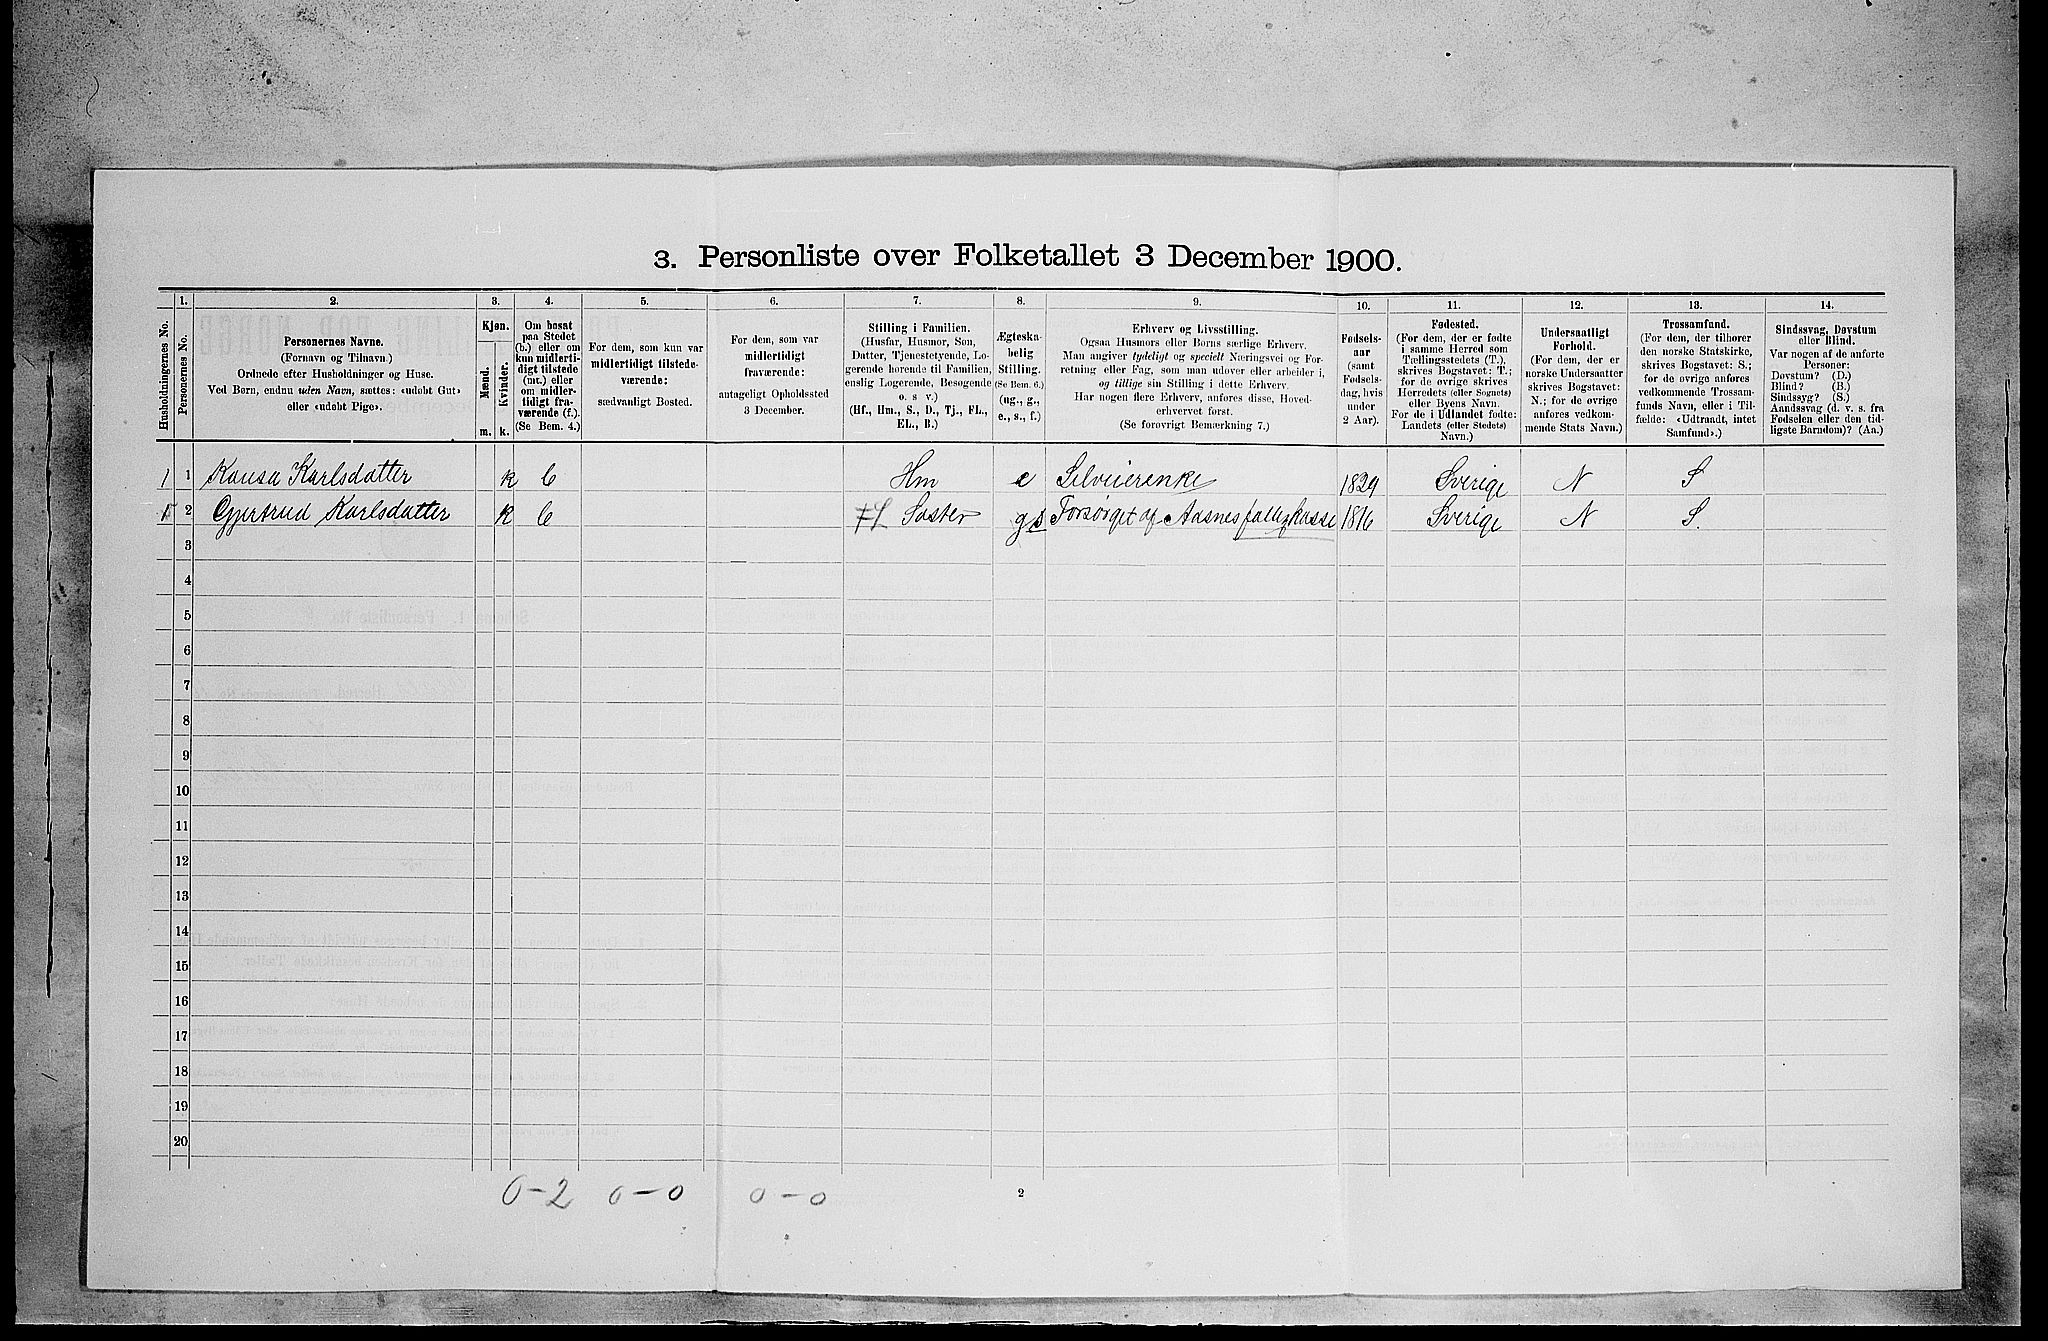 3. Personliste over Folketallet 3 December 1900.
1. 2. 3. 4. 5. 6. 7. 8. 9. 10. 11. 12. 13. 14.
Husholdningernes No.
Personernes No.
Personernes Navne.
(Fornavn og Tilnavn.)
Ordnede efter Husholdninger og Huse.
Ved Børn, endnu uden Navn, sættes: «udøbt Gut»
eller «udøbt Pige».
Kjøn.
Mænd.
Kvinder.
m. k.
Om bosat
paa Stedet
(b.) eller om
kun midlerti-
digt tilstede
(mt.) eller
om midler-
tidigt fra-
værende (f.).
(Se Bem. 4.)
For dem, som kun var
midlertidigt tilstede-
værende:
sædvanligt Bosted.
For dem, som var
midlertidigt
fraværende:
antageligt Opholdssted
3 December.
Stilling i Familien.
(Husfar, Husmor, Søn,
Datter, Tjenestetyende, Lo-
gerende hørende til Familien,
enslig Logerende, Besøgende
o. s. v.)
(Hf., Hm., S., D., Tj., FL.,
EL., B.)
Ægteska-
belig
Stilling.
(Se Bem. 6.)
(ug., g.,
e., s., f.)
Erhverv og Livsstilling.
Ogsaa Husmors eller Børns særlige Erhverv.
Man angiver tydeligt og specielt Næringsvei og For-
retning eller Fag, som man udøver eller arbeider i,
og tillige sin Stilling i dette Erhverv.
Har nogen flere Erhverv, anføres disse, Hoved-
erhvervet først.
(Se forøvrigt Bemærkning 7.)
Fødsels-
aar
(samt
Fødsels-
dag, hvis
under
2 Aar).
Fødested.
(For dem, der er fødte
i samme Herred som
Tællingsstedets (T.),
skrives Bogstavet: T.;
for de øvrige skrives
Herredets (eller Sognets)
eller Byens Navn.
For de i Udlandet fødte:
Landets (eller Stedets)
Navn.)
Undersaatligt
Forhold.
(For dem, der er
norske Undersaatter
skrives Bogstavet:
N.; for de øvrige
anføres vedkom-
mende Stats Navn.)
Trossamfund.
(For dem, der tilhører
den norske Statskirke,
skrives Bogstavet: S.;
for de øvrige anføres
vedkommende Trossam-
funds Navn, eller i Til-
fælde: «Udtraadt, intet
Samfund».)
Sindssvag, Døvstum
eller Blind.
Var nogen af de anførte
Personer:
Døvstum? (D.)
Blind? (B.)
Sindssyg? (S.)
Aandssvag (d. v. s. fra
Fødselen eller den tid-
ligste Barndom)? (Aa.)
1 1 Kausa Karlsdatter k b Hm e Selveierenke 1829 Sverige N S
2 Gjertrud Karlsdatter k b FL Søster g s Forsørget af Aasnes fattigkasse 1816 Sverige N S.
3
4
5
6
7
8
9
10
11
12
13
14
15
16
17
18
19
20
0-2 0-0 0-0
2